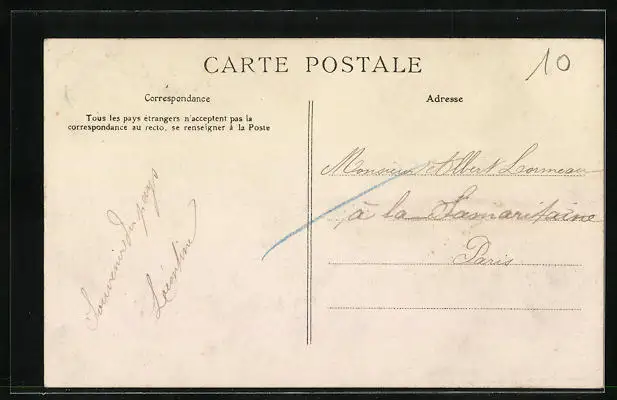 CARTE POSTALE
10
Correspondance
Adresse
Tous les pays étrangers n'acceptent pas la
correspondance au recto, se renseigner à la Poste
Monsieur Albert Lormeau
à la Samaritaine
Paris
Souvenir du pays